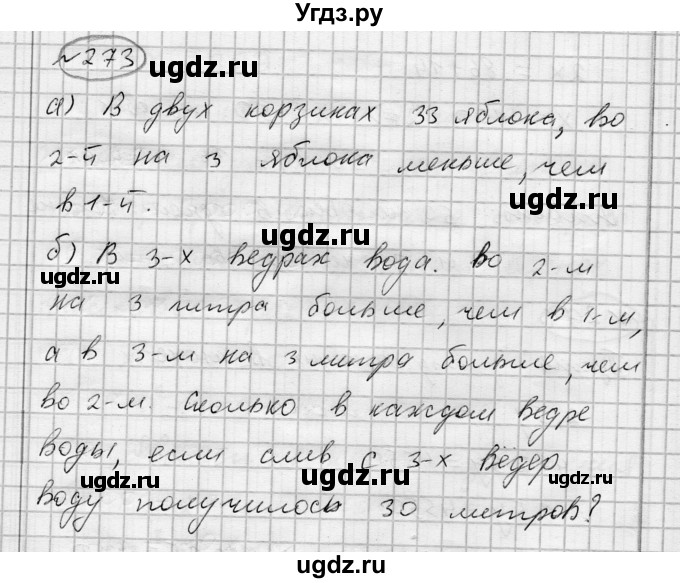 Угдз.ру
№273
ugdz.ru
ugdz.ru
а) В двух корзинах 33 яблока, во
2-й на 3 яблока меньше, чем
в 1-й.
ugdz.ru
ugdz.ru
б) В 3-х ведрах вода. Во 2-м
на 3 литра больше, чем в 1-м,
а в 3-м на 3 литра больше, чем
ugdz.ru
во 2-м. Сколько в каждом ведре
воды, если слив с 3-х вёдер
ugdz.ru
ugdz.ru
воду получилось 30 литров?
ugdz.ru